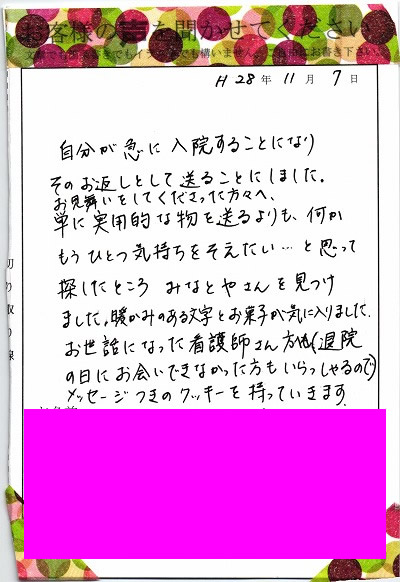 お客様の声を聞かせてください
H 28年 11月 7日
自分が急に入院することになり
そのお返しとして送ることにしました。
お見舞いをしてくださった方々へ、
単に実用的な物を送るよりも、何か
もうひとつ気持ちをそえたい…と思って
探したところ みなとやさんを見つけ
ました。暖かみのある文字とお菓子が気に入りました。
お世話になった看護師さん方にも(退院
の日にお会いできなかった方もいらっしゃるので)
メッセージつきのクッキーを持っていきます。
切り取り線